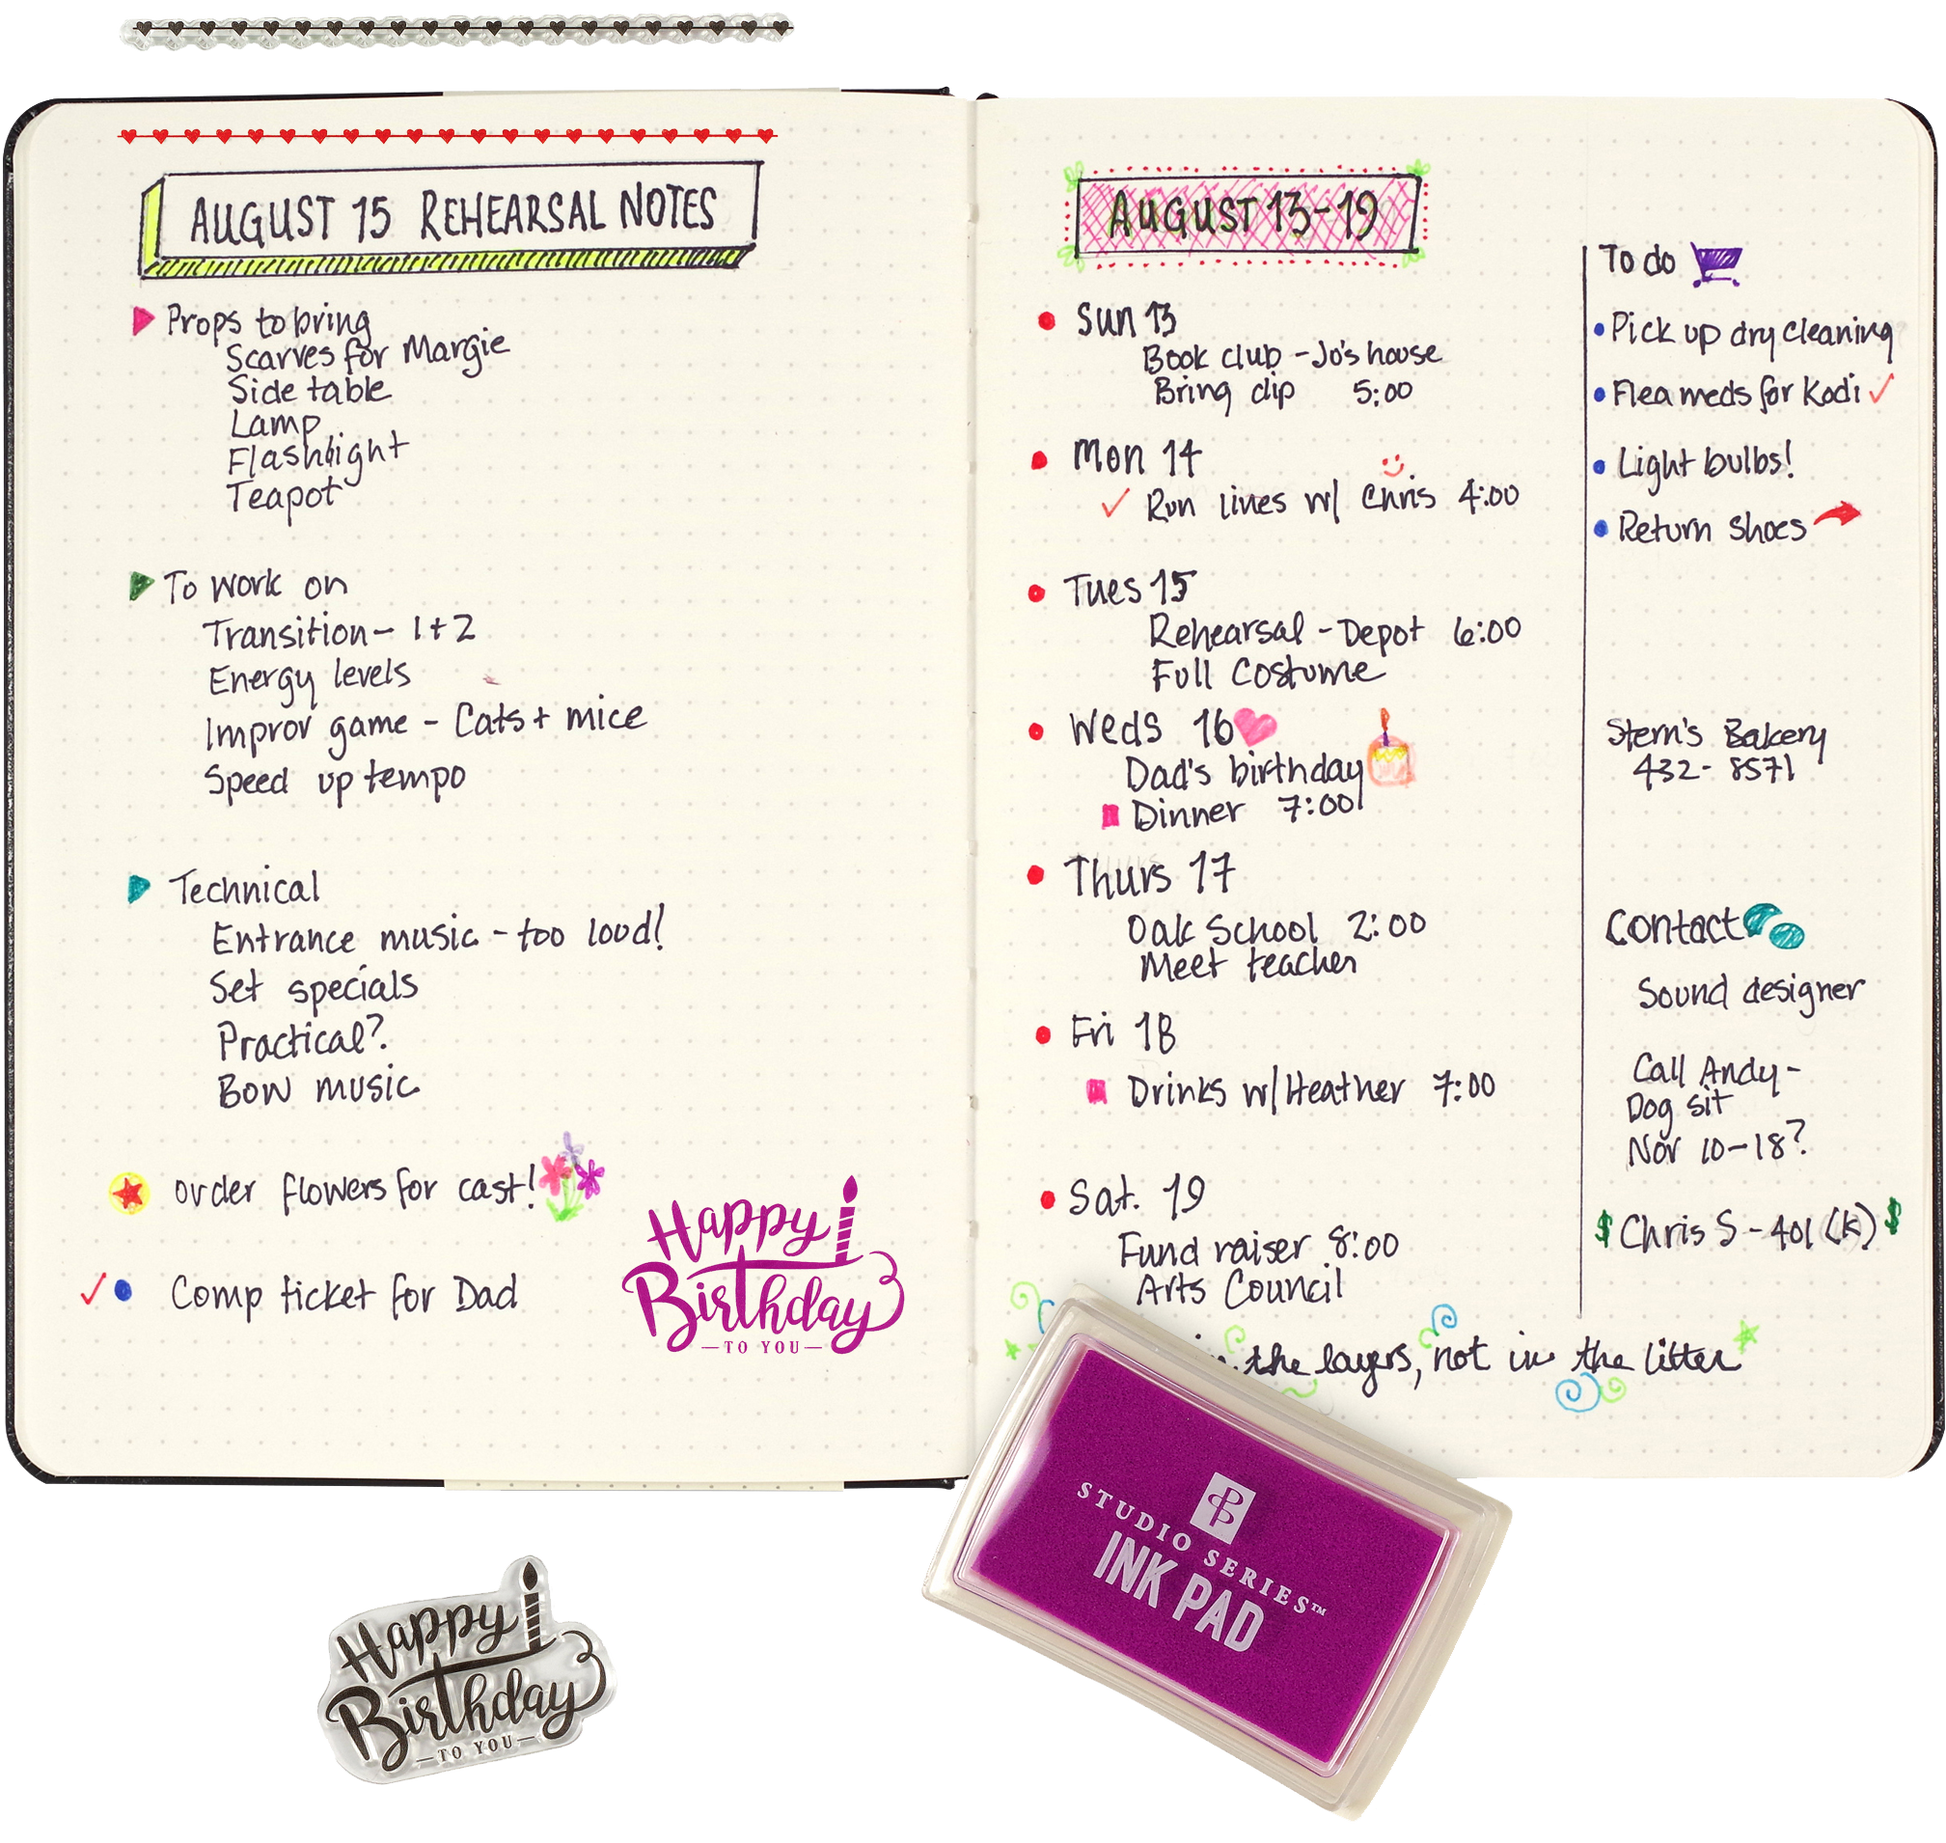 AUGUST 15 REHEARSAL NOTES
Props to bring
Scarves for Margie
Side table
Lamp
Flashlight
Teapot
To work on
Transition - 1+2
Energy levels
Improv game - Cats + mice
Speed up tempo
Technical
Entrance music - too loud!
Set specials
Practical?
Bow music
order flowers for cast!
Comp ticket for Dad
Happy
Birthday
—TO YOU—
AUGUST 13-19
Sun 13
Book club - Jo's house
Bring dip 5:00
Mon 14
✓ Run lines w/ Chris 4:00
Tues 15
Rehearsal - Depot 6:00
Full Costume
Weds 16
Dad's birthday
Dinner 7:00
Thurs 17
Oak School 2:00
Meet teacher
Fri 18
Drinks w/ Heather 7:00
Sat. 19
Fund raiser 8:00
Arts Council
in the layers, not in the litter
To do
Pick up dry cleaning
Flea meds for Kodi ✓
Light bulbs!
Return shoes
Stern's Bakery
432-8571
Contact
Sound designer
Call Andy-
Dog sit
Nov 10-18?
$ Chris S - 401(k) $
STUDIO SERIES™
INK PAD
Happy
Birthday
—TO YOU—